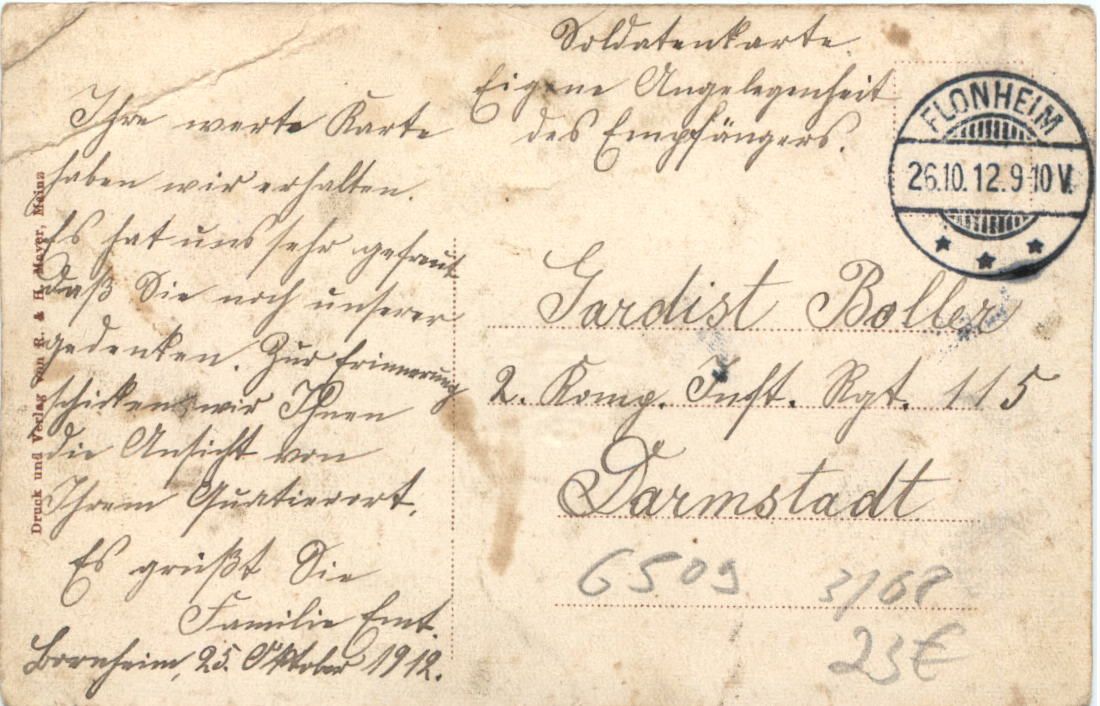 Soldatenkarte.
Eigene Angelegenheit
des Empfängers.
FLONHEIM
26.10.12.9-10V.
Ihre werte Karte
haben wir erhalten.
Es hat uns sehr gefreut
daß Sie noch unserer
gedenken. Zur Erinnerung
schicken wir Ihnen
die Ansicht von
Ihrem Quatierort.
Es grüßt Sie
Familie Emt.
Bornheim, 25. Oktober 1912.
Gardist Boller
2. Komp. Inft. Rgt. 115
Darmstadt
6509 3/68
23€
Druck und Verlag von R. & H. Meyer, Mainz